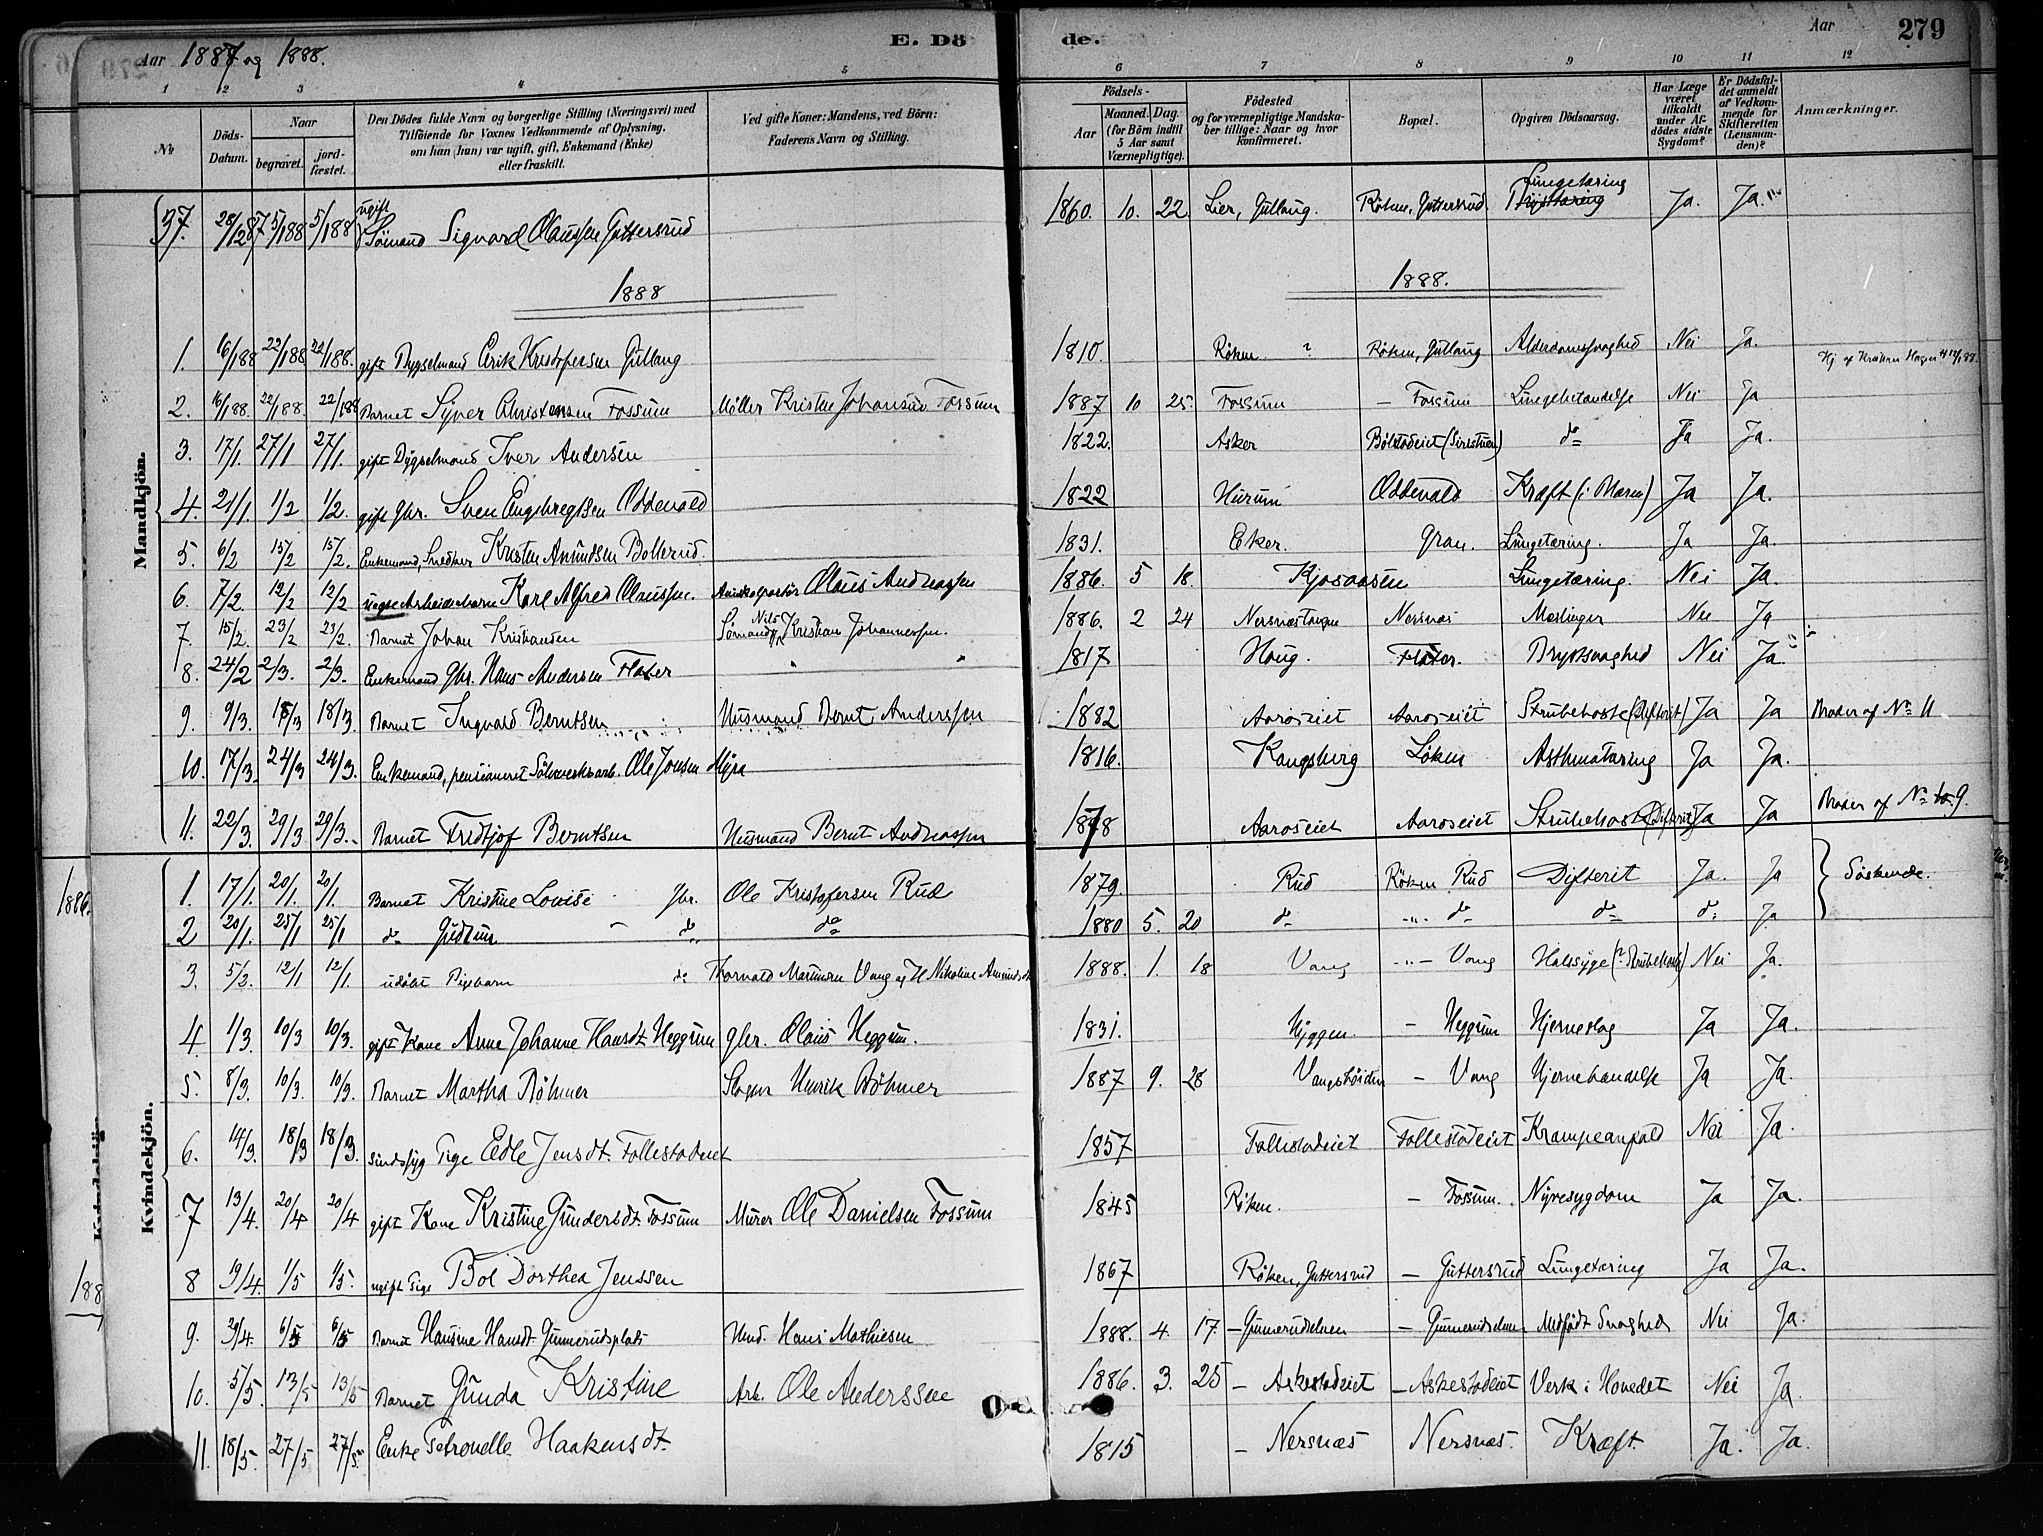 Aar 1887 og 1888. E. Döde. Aar 279
1 2 3 4 5 6 7 8 9 10 11 12
No Döds-Datum. Naar begravet. jord-fæstet. Den Dödes fulde Navn og borgerlige Stilling (Næringsvei) med Tilföiende for Voxnes Vedkommende af Oplysning, om han (hun) var ugift, gift, Enkemand (Enke) eller fraskilt. Ved gifte Koner: Mandens, ved Börn: Faderens Navn og Stilling. Födsels- Aar Maaned. Dag. (for Börn indtil 5 Aar samt Værnepligtige). Födested og for værnepligtige Mandskaber tillige: Naar og hvor konfirmeret. Bopæl. Opgiven Dödsaarsag. Har Læge været tilkaldt under Afdödes sidste Sygdom? Er Dödsfaldet anmeldt af Vedkommende for Skifteretten (Lensmanden)? Anmærkninger.
Mandkjön.
37. 28/12 87 5/1 88 5/1 88 ugift Sömand Sigvard Olaussen Guttersrud 1860. 10. 22. Lier, Gullaug. Röken, Guttersrud Lungetæring Brysttæring Ja. Ja.
1888 1888.
1. 16/1 88 22/1 88 22/1 88. gift Bygselmand Erik Kristofersen Gullaug 1810. Röken ? Röken, Gullaug Alderdomssvaghed Nei Ja.
2. 16/1 88. 22/1 88. 22/1 88 Barnet Syver Christensen Fossum Møller Kristen Johansen Fossum 1887 10 25. Fossum – Fossum Lungebetændelse Nei Ja
3. 17/1. 27/1 27/1. gift Bygselmand Iver Andersen 1822. Asker Bölstadeiet do Ja Ja.
4. 21/1 1/2 1/2. gift Gbr. Sven Engebregtsen Oddevald 1822 Hurum Oddevald Kræft (i Maven) Ja Ja.
5. 6/2 15/2 15/2. Enkemand, Snedker Kristen Amundsen Bollerud. 1831. Eker. Gran. Lungetæring. Ja Ja.
6. 7/2. 12/2 12/2 uægte Arbeidsbarn Karl Alfred Olaussen. Olaus Andreassen 1886. 5 18. Kjosaasen Lungetæring. Nei Ja
7. 15/2. 23/2 23/2. Barnet Johan Kristiansen Sömand Nils Kristian Johannessen. 1886. 2 24 Nersnæstangen Nersnæs Meslinger Nei Ja
8. 24/2 2/3. 2/3. Enkemand Gbr. Hans Andersen Flater 1817 Haug. Flater. Brystsvaghed Nei Ja.
9. 9/3. 18/3 18/3. Barnet Ingvald Berntsen Husmand Bernt Anderssen 1882 Aaroseiet Aaroseiet Strubehoste (Difterit) Ja Ja Broder af No 11
10. 17/3. 24/3 24/3. Enkemand, pensioneret Sölvverksarb. Ole Jonsen Myra 1816. Kongsberg Löken Asthmatæring Ja Ja.
11. 22/3. 29/3 29/3. Barnet Fridtjof Berntsen Husmand Bernt Andreassen 1878 Aaroseiet Aaroseiet Strubehoste (Difterit) Ja Ja Broder af No 9.
Kvindekjön.
1886.
1. 17/1. 20/1. 20/1. Barnet Kristine Lovise Gbr. Ole Kristofersen Rud 1879. Rud Röken Rud Difterit Ja. Ja Söskende.
2 20/1. 25/1 25/1 do Gudrun do do 1880 5. 20 do do do do Ja
3. 5/2. 12/1 12/1. udöbt Pigebarn do Thorvald Martinsen Vang og H. Nikoline 1888. 1. 18 Vang – Vang Halssyge (? Strubehoste) Nei Ja.
4. 1/3. 10/3 10/3. gift Kone Anne Johanne Hansdt. Heggum gbr. Olaus Heggum. 1831. Hyggen – Heggum Hjerneslag Ja Ja.
5. 8/3. 10/3. 10/3. Barnet Martha Böhmer Henrik Böhmer 1887 9. 28 – Vang Ja Ja.
6. 14/3. 18/3 18/3. Sindssyg Pige Edle Jensdt. Follestadeiet 1857 Follestadeiet Follestadeiet Krampeanfald Nei Ja.
7 13/4. 20/4 20/4 gift Kone Kristine Gundersdt. Fossum Murer Ole Danielsen Fossum 1845 Röken. – Fossum. Nyresygdom Ja Ja.
188
8 19/4. 1/5 1/5. ugift Pige Bol Dorthea Jenssen 1867 Röken, Guttersrud – Guttersrud Lungetæring Ja Ja.
9. 29/4. 6/5 6/5 Barnet Hansine Hansdt. Gunnerudsplads Hmd. Hans Mathiesen 1888. 4. 17. – Gunnerudselven – Gunnerudselven Medfödt Svaghed Nei Ja.
10. 5/5. 13/5 13/5 Barnet Gunda Kristine Arb. Ole Anderssen 1886. 3. 25 – Askestadeiet – Askestadeiet Verk i Hovedet Nei Ja.
11. 18/5. 27/5 27/5. Enke Petronelle Haakensdt. 1815 – Nersnæs Nersnæs. Kræft. Ja. Ja.